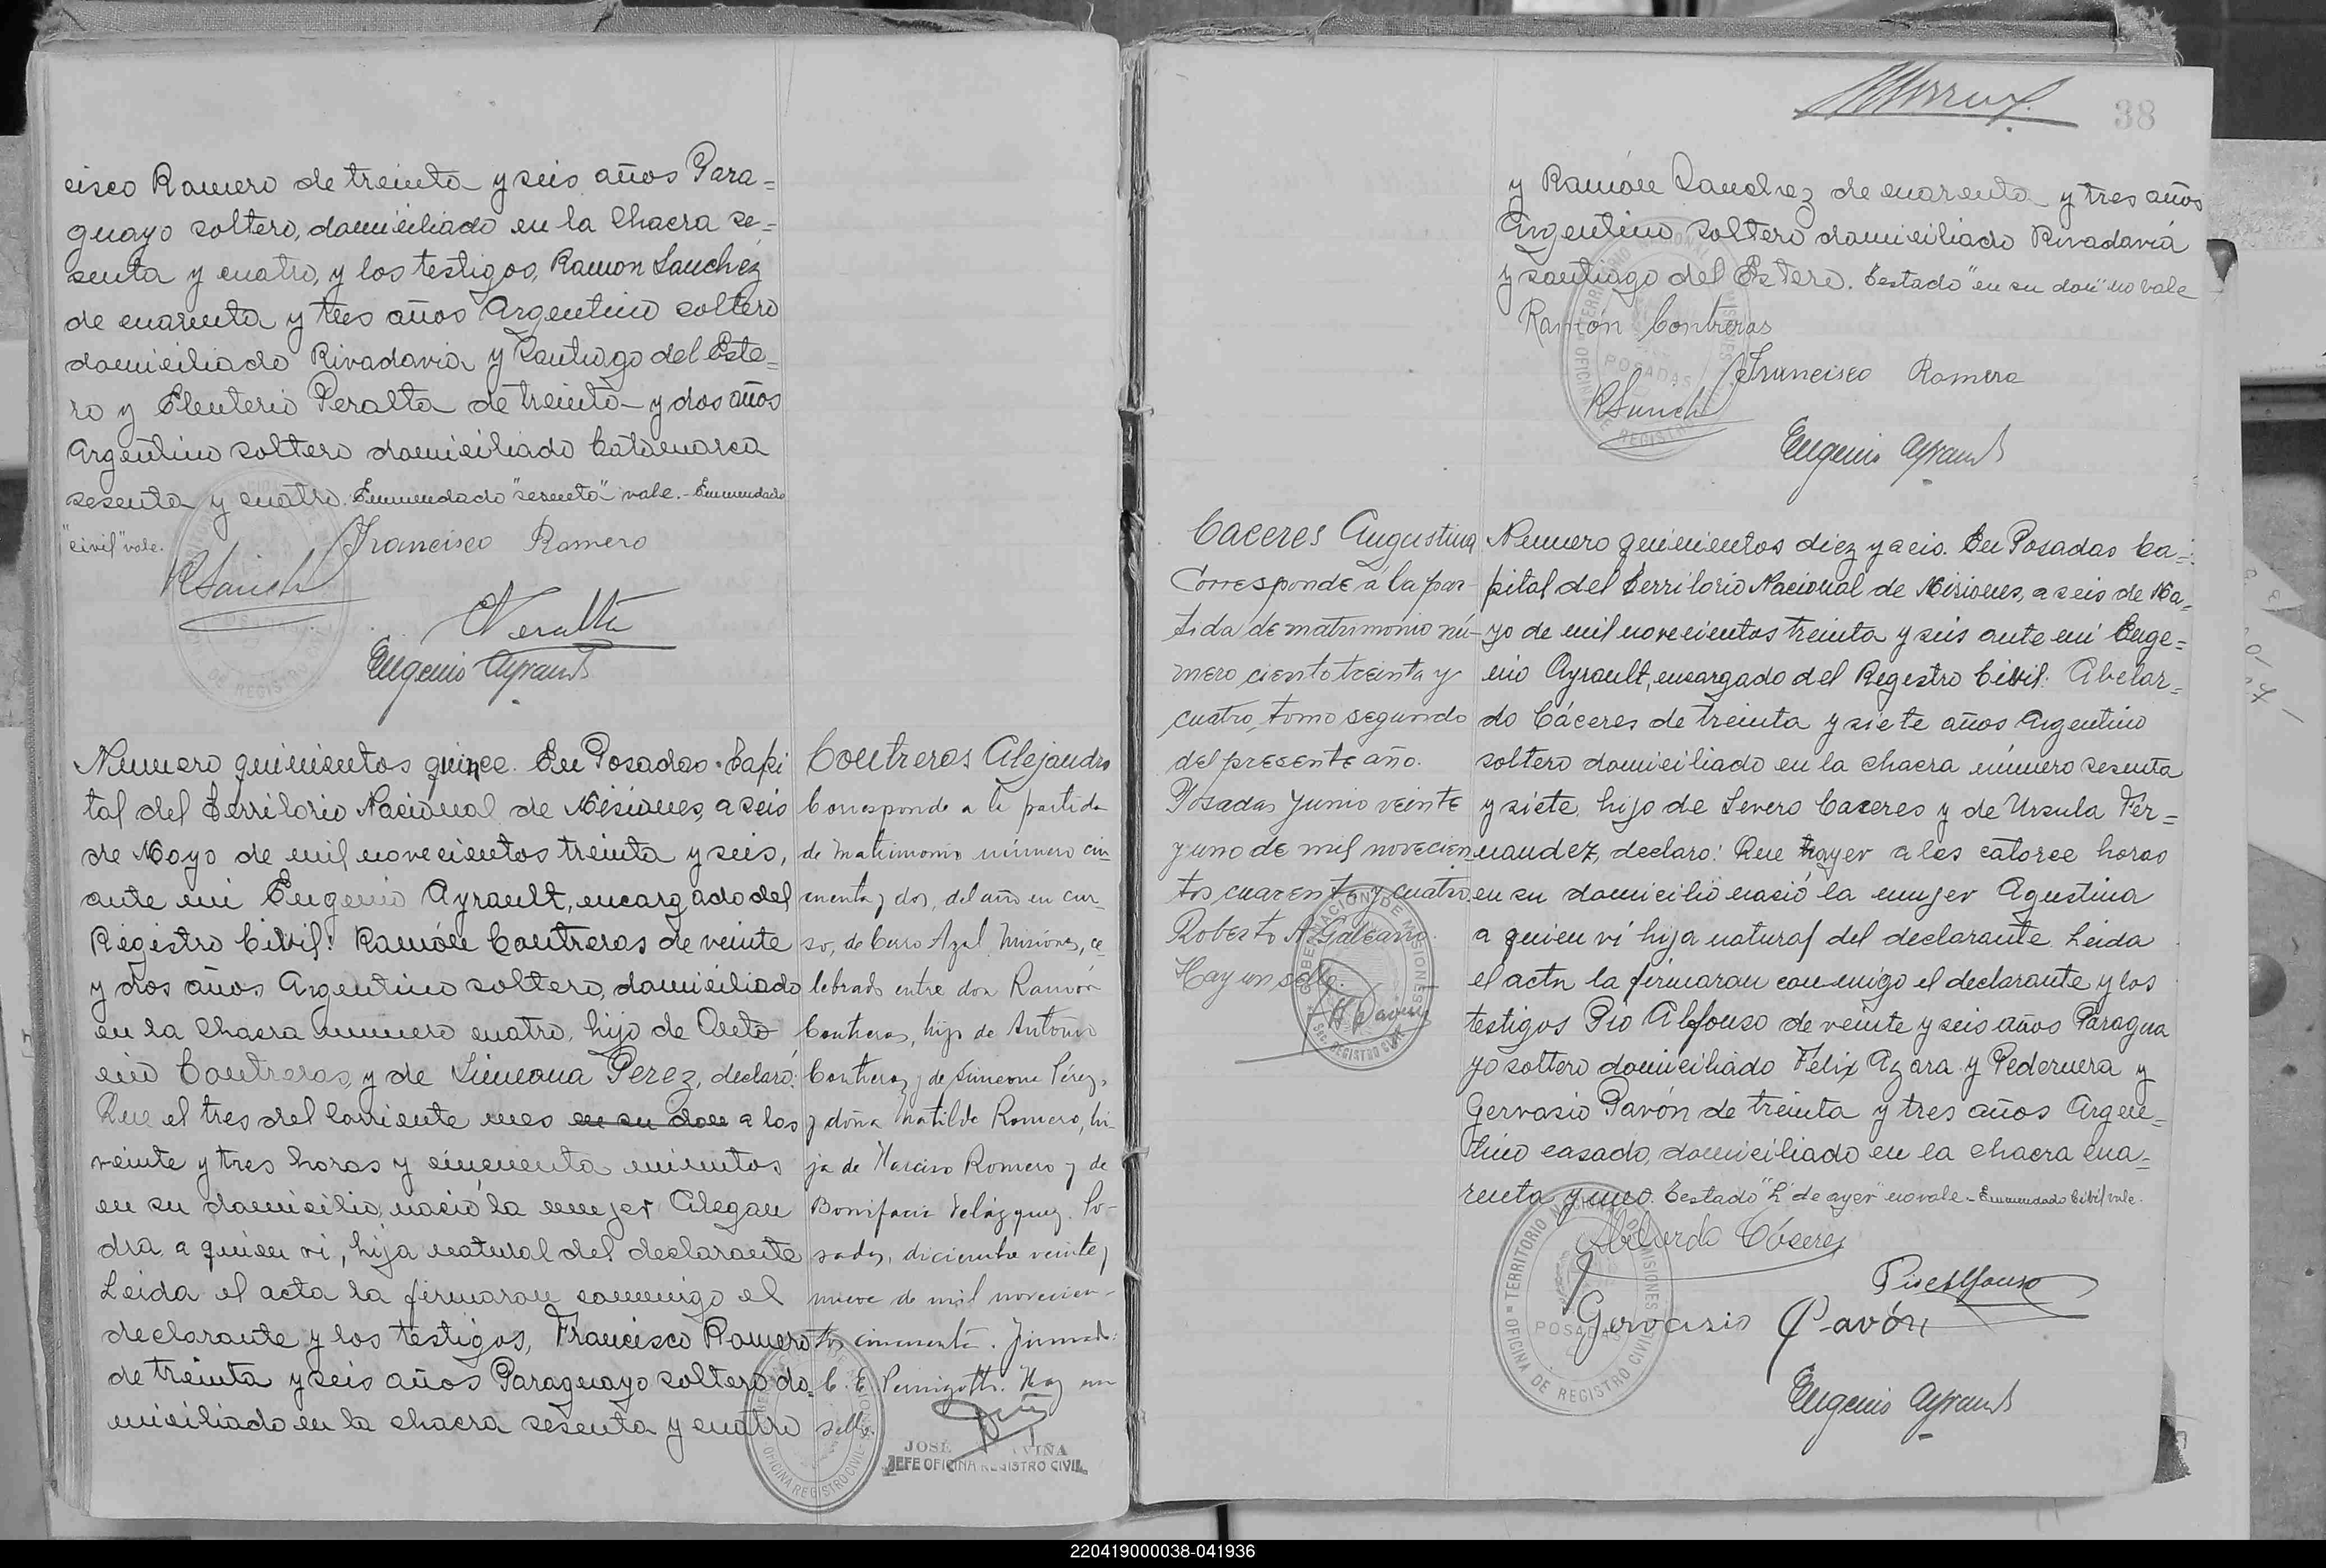 cisco Romero de treinta y seis años Para=
guayo soltero, domiciliado en la Chacra se=
senta y cuatro, y los testigos, Ramon Sanchez
de cuarenta y tres años Argentino soltero
domiciliado Rivadavia y Santiago del Este=
ro y Eleuterio Peralta de treinta y dos años
Argentino soltero domiciliado Catamarca
sesenta y cuatro. Enmendado "sesenta" vale.- Enmendado
"civil" vale.
Francisco Romero
RSanch
Peralta
Eugenio Ayrault
Numero quinientos quince. En Posadas Capi
tal del Territorio Nacional de Misiones, a seis
de Mayo de mil novecientos treinta y seis,
ante mi Eugenio Ayrault, encargado del
Registro Civil: Ramón Contreras de veinte
y dos años Argentino soltero, domiciliado
en la Chacra numero cuatro, hijo de Anto
nio Contreras, y de Simeona Perez, declaró:
Que el tres del corriente mes en su dom a las
veinte y tres horas y cincuenta minutos
en su domicilio, nació la mujer Alegan
dra a quien vi, hija natural del declarante
Leida el acta la firmaron conmigo el
declarante y los testigos, Francisco Romero
de treinta y seis años Paraguayo soltero do
miciliado en la chacra sesenta y cuatro
Contreras Alejandra
Corresponde a la partida
de matrimonio número cin
cuenta y dos, del año en cur-
so, de Cerro Azul Misiones, ce
lebrado entre don Ramón
Contreras, hijo de Antonio
Contreras y de Simeona Pérez,
y doña Matilde Romero, hi-
ja de Narciso Romero y de
Bonifacia Velázquez. Po-
sadas, diciembre veinte y
nueve de mil novecien-
tos cincuenta. Firmado:
C. E. Pernigotti. Hay un
sello.
JOSÉ VIÑA
JEFE OFICINA REGISTRO CIVIL
OFICINA REGISTRO CIVIL
38
y Ramón Sanchez de cuarenta y tres años
Argentino soltero domiciliado Rivadavia
y santiago del Estero. Testado "en su dom" no vale
Ramón Contreras
Francisco Romero
RSanch
Eugenio Ayrault
Caceres Augustina
Corresponde á la par-
tida de matrimonio nú-
mero ciento treinta y
cuatro, tomo segundo
del presente año.
Posadas Junio veinte
y uno de mil novecien
tos cuarenta y cuatro
Roberto A Galeano.
Hay un sello.
GOBERNACIÓN DE MISIONES
SEC. REGISTRO CIVIL
Numero quinientos diez y seis. En Posadas Ca=
pital del Territorio Nacional de Misiones, a seis de Ma=
yo de mil novecientos treinta y seis ante mi Euge=
nio Ayrault, encargado del Registro Civil: Abelar=
do Cáceres de treinta y siete años Argentino
soltero domiciliado en la chacra número sesenta
y siete, hijo de Severo Caceres y de Ursula Fer=
nandez, declaro: Que hayer a las catorce horas
en su domicilio nació la mujer Agustina
a quien vi hija natural del declarante. Leida
el acta la firmaron conmigo el declarante y los
testigos Pío Alfonso de veinte y seis años Paragua
yo soltero domiciliado Félix Azara y Pedernera y
Gervasio Pavón de treinta y tres años Argen=
tino casado, domiciliado en la chacra cua=
renta y uno. Testado "h" de ayer" no vale - Enmendado Civil vale.
Abelardo Cáceres
Pio Alfonso
Gervasio Pavón
TERRITORIO NACIONAL DE MISIONES
POSADAS
OFICINA DE REGISTRO CIVIL
Eugenio Ayrault
220419000038-041936